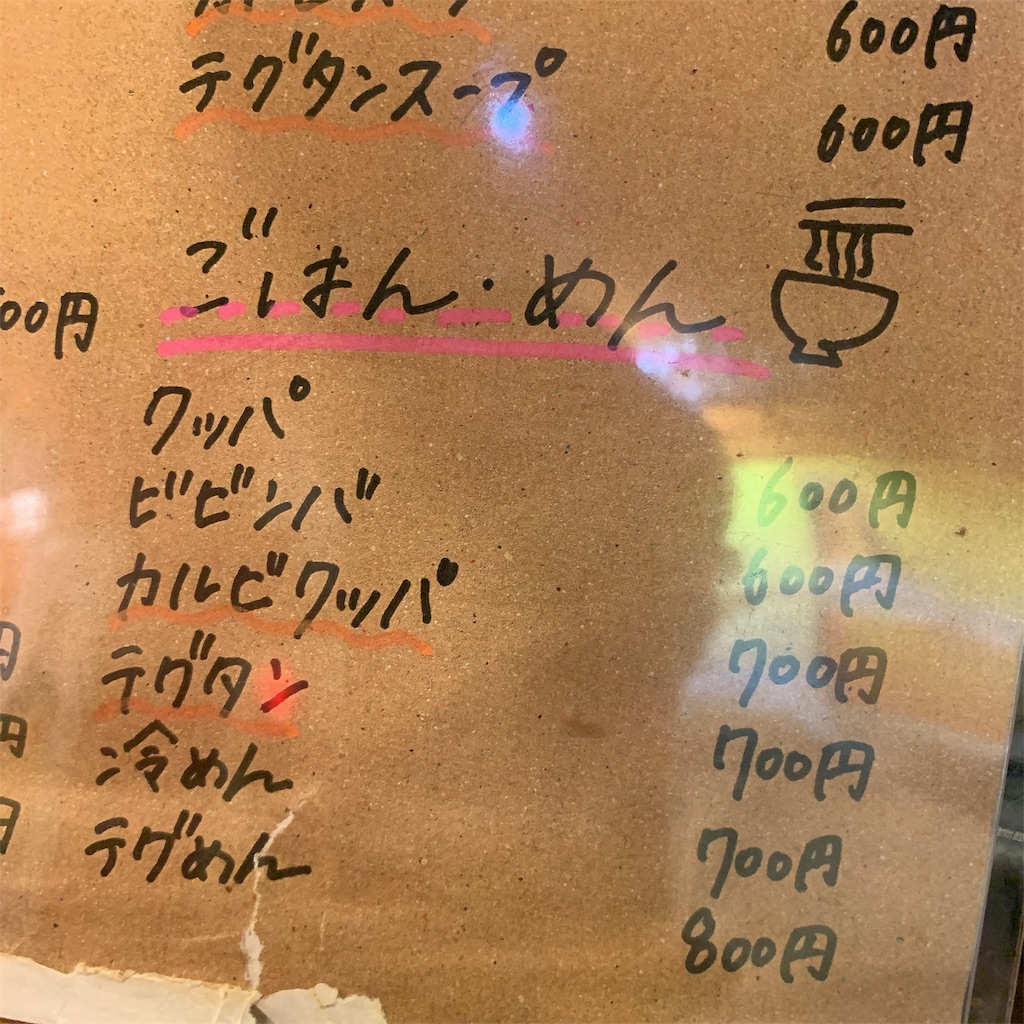 600円
テグタンスープ 600円
ごはん・めん
00円
クッパ 600円
ビビンバ 600円
カルビクッパ 700円
テグタン 700円
冷めん 700円
テグめん 800円